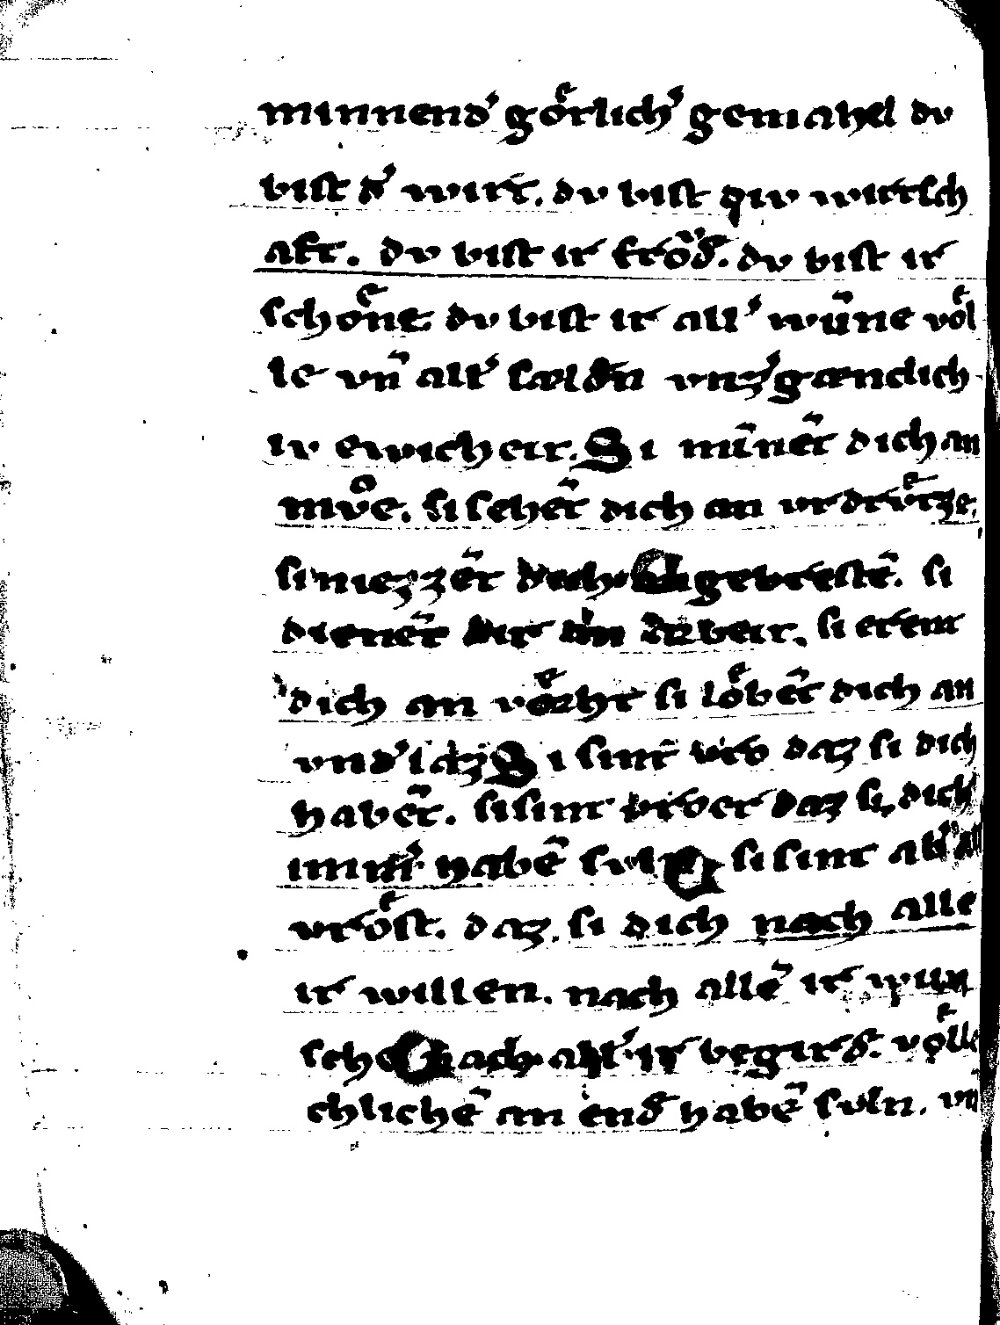 minnend' go̍rlich' gemahel dv
bist d' wirt. dv bist div wirtsch
aft. dv bist ir frö̍d. dv bist ir
schoͤne. dv bist ir all' wūne voͤl
le vn̄ all' sældn̄ vnz'gænclich
iv ewicheit. Si mīnēt dich an
mvͦe. si sehēt dich an vrdrvͤtze.
si niezzēt dich an gebrestē. si
dienēt dir an arbeit. si erent
dich an voͤrht si loͤbēt dich an
vnd'laz Si sint vro daz si dich
habēt. si sint vroer daz si dich
imm' habē svln si sint all'
vroͤst. daz si dich nach alle
ir willen. nach allē ir wun
sche nach all' ir begird. voͤlle
chlichē an end habē svln. vn̄